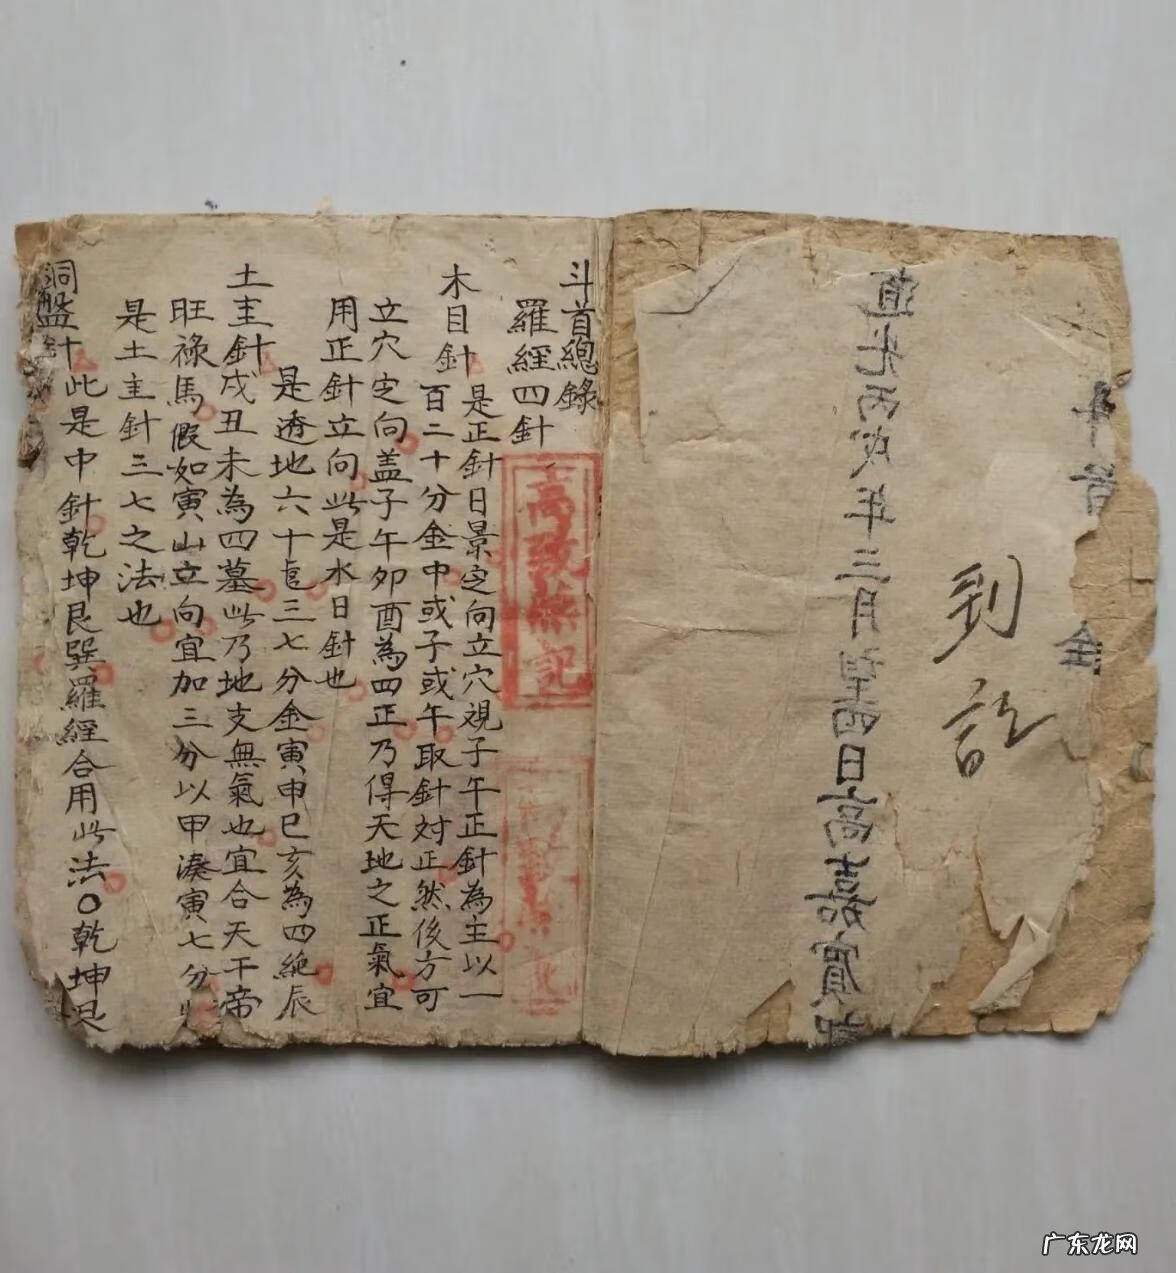 斗首
全
到
訖
道光丙戌年三月望四日高嘉賓
斗首總錄
羅經四針
高致熙記
木目針是正針日景定向立穴視子午正針為主以一
百二十分金中或子或午取針対正然後方可
立穴定向盖子午卯酉為四正乃得天地之正氣宜
用正針立向此是水日針也
是透地六十 三七分金寅申巳亥為四絶辰
土圭針戌丑未為四墓此乃地支無氣也宜合天干帝
旺祿馬假如寅山立向宜加三分以甲湊寅七分
是土主針三七之法也
洞盤針此是中針乾坤艮巽羅經合用此法〇乾坤艮
广东龙网